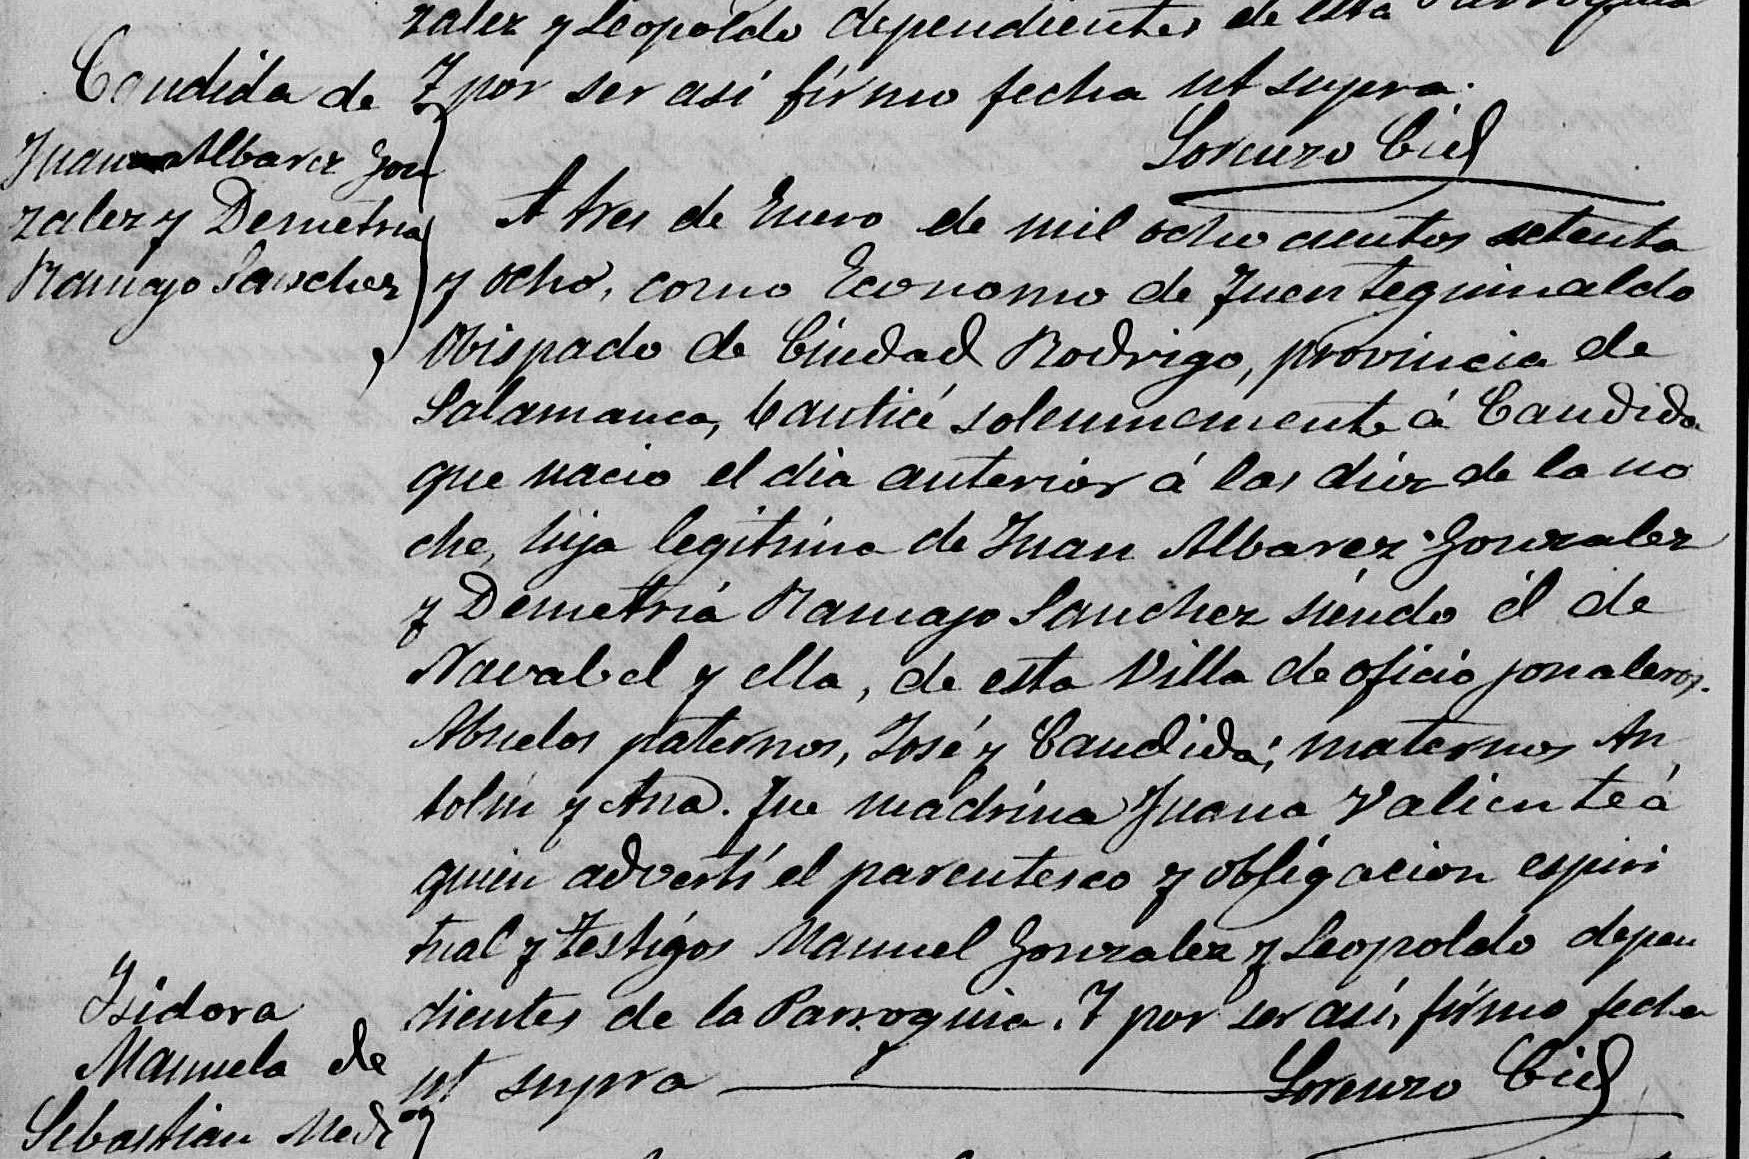 zalez y Leopoldo dependientes de esta Parroquia
Y por ser asi firmo fecha ut supra.
Lorenzo Cid
Candida de
Juan Albarez Gon
zalez y Demetria
Ramajo Sanchez
A tres de Enero de mil ocho cientos setenta
y ocho, como Economo de Fuenteguinaldo
Obispado de Ciudad Rodrigo, provincia de
Salamanca, bauticé solemnemente á Candida
que nacio el dia anterior á las diez de la no
che, hija legitima de Juan Albarez Gonzalez
y Demetria Ramajo Sanchez siendo él de
Navabel y ella, de esta Villa de oficio jornaleros.
Abuelos paternos, José y Candida; maternos An
tolin y Ana. Fue madrina Juana Valiente á
quien advertí el parentesco y obligacion espiri
tual y testigos Manuel Gonzalez y Leopoldo depen
dientes de la Parroquia. Y por ser asi, firmo fecha
ut supra
Lorenzo Cid
Isidora
Manuela de
Sebastian